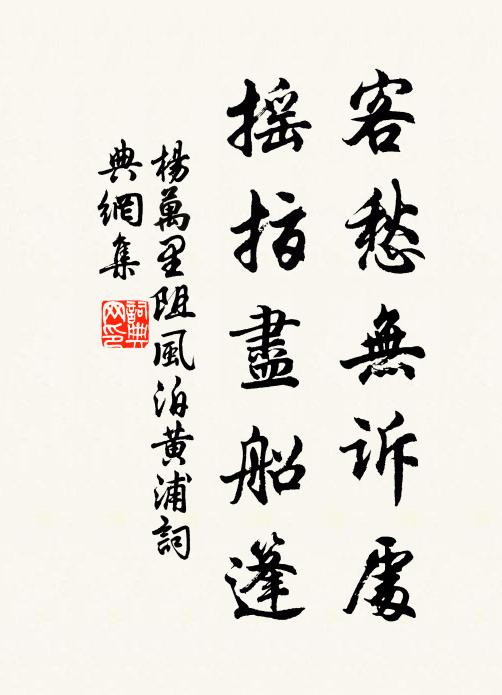 客愁無訴處
摇指盡船篷
楊萬里阻風泊黄浦詞
典網集
詞典
网印